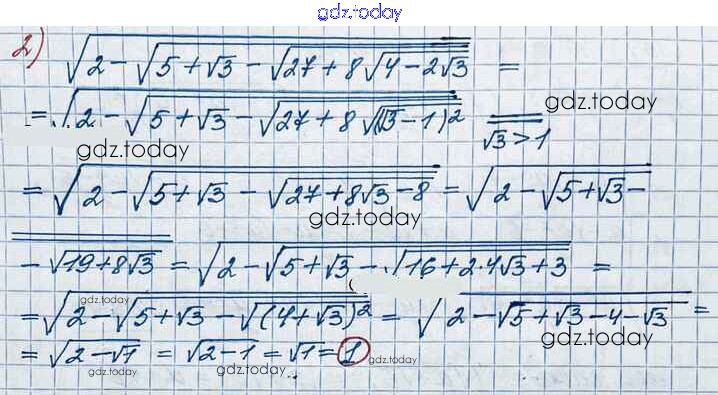 gdz.today
2) √(2 − √(5 + √3 − √(27 + 8√(4 − 2√3)))) =
= √(2 − √(5 + √3 − √(27 + 8√((√3 − 1)²)))) √3 > 1 gdz.today
gdz.today
= √(2 − √(5 + √3 − √(27 + 8√3 − 8))) = √(2 − √(5 + √3 −
gdz.today
− √(19 + 8√3))) = √(2 − √(5 + √3 − √(16 + 2·4√3 + 3))) =
= √(2 − √(5 + √3 − √((4 + √3)²))) = √(2 − √(5 + √3 − 4 − √3)) =
gdz.today gdz.today gdz.today
= √(2 − √1) = √(2 − 1) = √1 = 1 gdz.today
gdz.today gdz.today